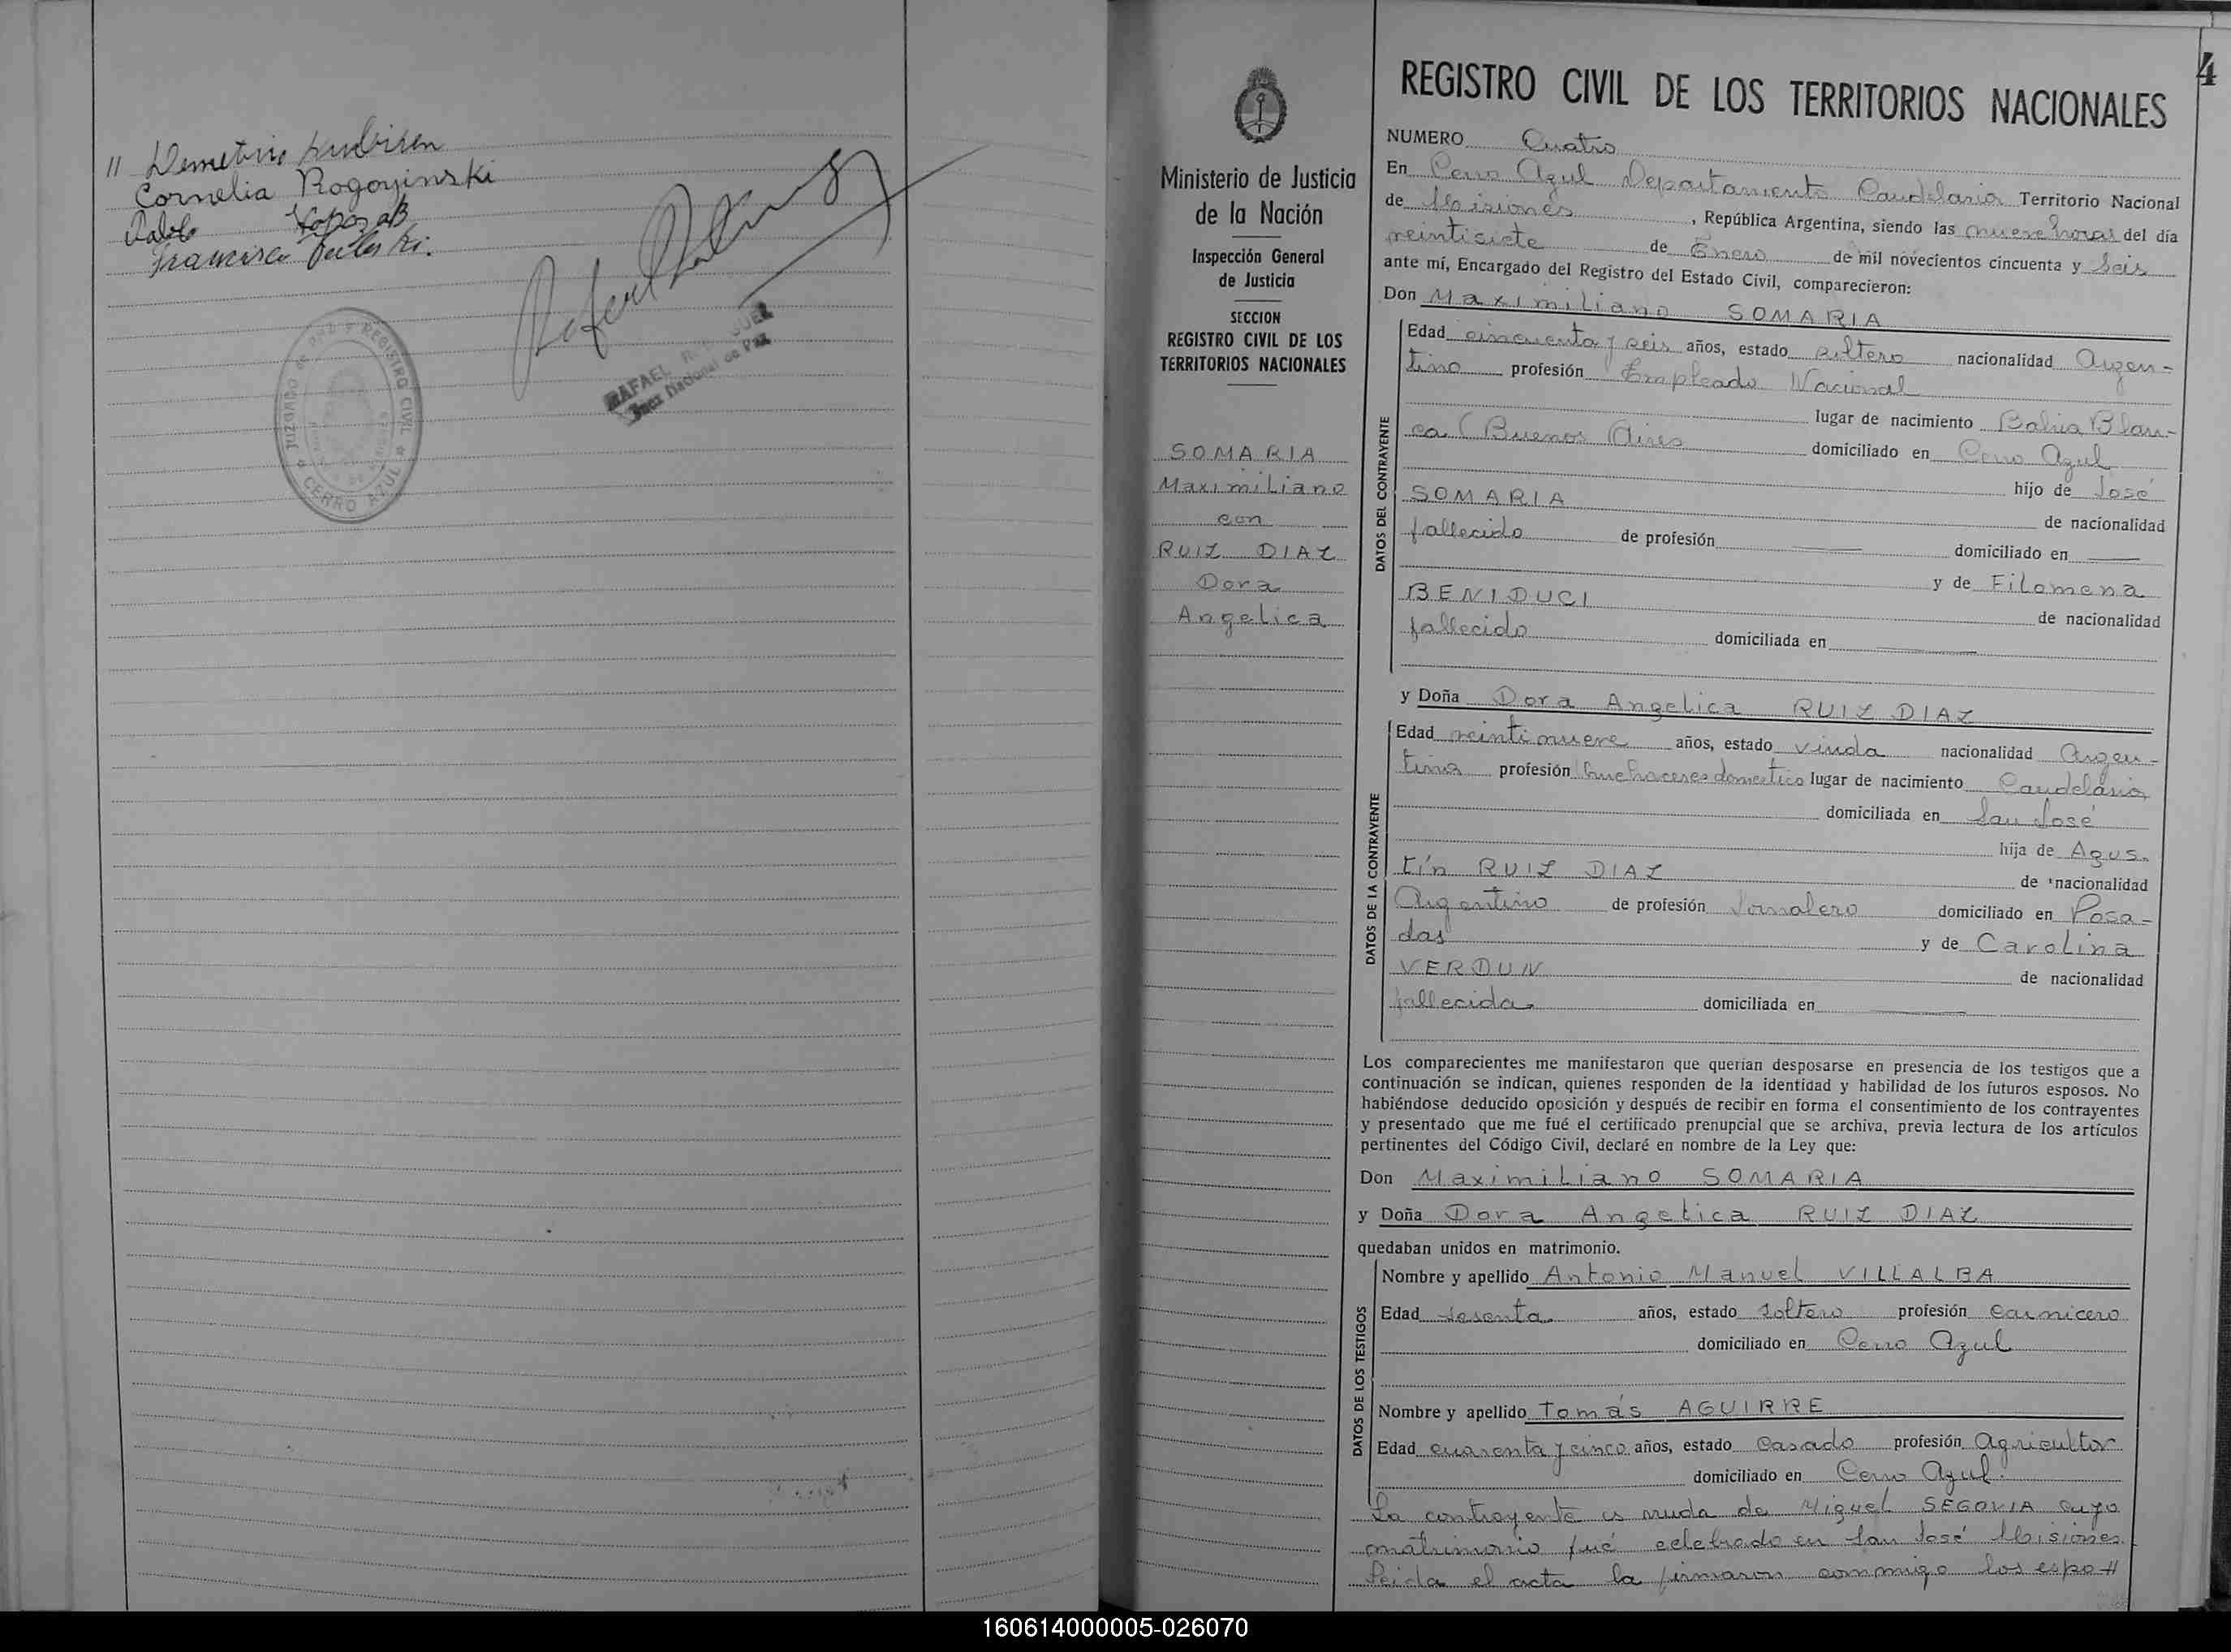 " Demetrio
Cornelia Rogoyinski
Pablo
Francisco
JUZGADO DE PAZ Y REGISTRO CIVIL
CERRO AZUL
RAFAEL
Juez Nacional de Paz
Ministerio de Justicia
de la Nación
Inspección General
de Justicia
SECCION
REGISTRO CIVIL DE LOS
TERRITORIOS NACIONALES
SOMARIA
Maximiliano
con
RUIZ DIAZ
Dora
Angelica
4
REGISTRO CIVIL DE LOS TERRITORIOS NACIONALES
NUMERO Cuatro
En Cerro Azul Departamento Candelaria Territorio Nacional
de Misiones, República Argentina, siendo las nueve horas del día
veintisiete de Enero de mil novecientos cincuenta y Seis
ante mí, Encargado del Registro del Estado Civil, comparecieron:
Don Maximiliano SOMARIA
DATOS DEL CONTRAYENTE
Edad cincuenta y seis años, estado soltero nacionalidad Argen-
tino profesión Empleado Nacional
lugar de nacimiento Bahia Blan-
ca (Buenos Aires domiciliado en Cerro Azul
hijo de José
SOMARIA de nacionalidad
fallecido de profesión domiciliado en
y de Filomena
BENIDUCI de nacionalidad
fallecido domiciliada en
y Doña Dora Angelica RUIZ DIAZ
DATOS DE LA CONTRAYENTE
Edad veintinueve años, estado viuda nacionalidad Argen-
tina profesión Quehaceres domestico lugar de nacimiento Candelaria
domiciliada en San José
hija de Agus-
tín RUIZ DIAZ de nacionalidad
Argentino de profesión Jornalero domiciliado en Posa-
das y de Carolina
VERDUN de nacionalidad
fallecida domiciliada en
Los comparecientes me manifestaron que querían desposarse en presencia de los testigos que a
continuación se indican, quienes responden de la identidad y habilidad de los futuros esposos. No
habiéndose deducido oposición y después de recibir en forma el consentimiento de los contrayentes
y presentado que me fué el certificado prenupcial que se archiva, previa lectura de los artículos
pertinentes del Código Civil, declaré en nombre de la Ley que:
Don Maximiliano SOMARIA
y Doña Dora Angelica RUIZ DIAZ
quedaban unidos en matrimonio.
DATOS DE LOS TESTIGOS
Nombre y apellido Antonio Manuel VILLALBA
Edad sesenta años, estado soltero profesión carnicero
domiciliado en Cerro Azul
Nombre y apellido Tomás AGUIRRE
Edad cuarenta y cinco años, estado casado profesión Agricultor
domiciliado en Cerro Azul.
La contrayente es viuda de Miguel SEGOVIA cuyo
matrimonio fué celebrado en San José Misiones.
Leida el acta la firmaron conmigo los espo //
160614000005-026070